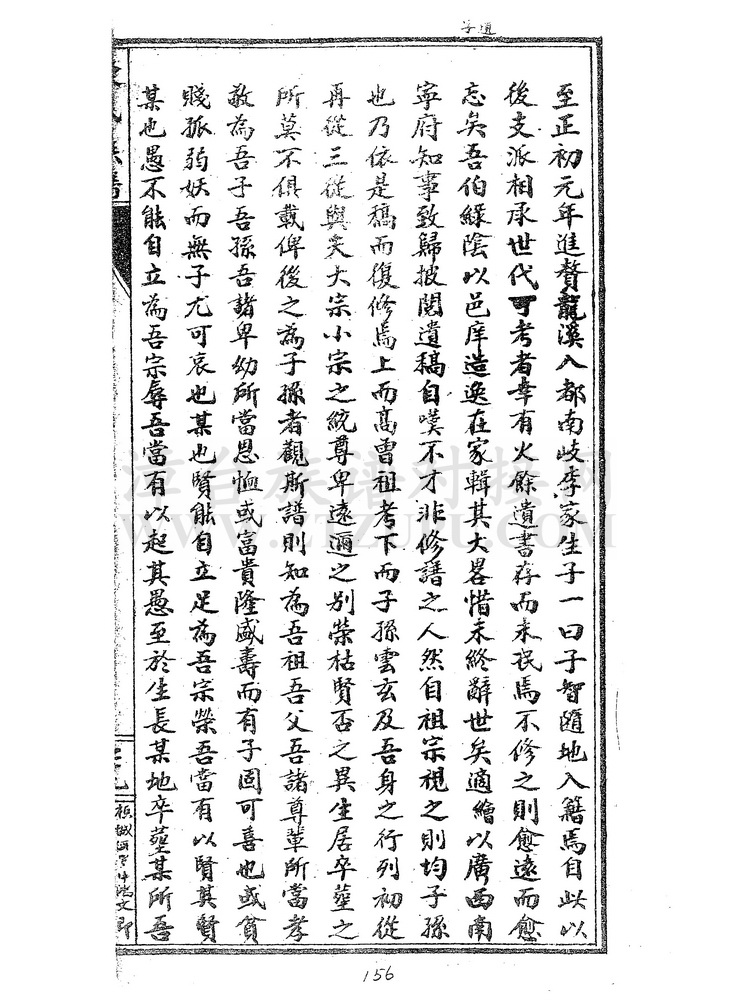 至正初元年進贅龍溪八都南岐李家生子一曰子智隨地入籍焉自此以
後支派相承世代可考者幸有火餘遺書存而未泯焉不修之則愈遠而愈
忘矣吾伯綠陰以邑庠造逸在家輯其大畧惜未終辭世矣適繪以廣西南
寧府知事致歸披閱遺稿自嘆不才非修譜之人然自祖宗視之則均子孫
也乃依是稿而復修焉上而高曾祖考下而子孫雲玄及吾身之行列初從
再從三從與夫大宗小宗之統尊卑遠邇之別榮枯賢否之異生居卒塋之
所莫不俱載俾後之為子孫者觀斯譜則知為吾祖吾父吾諸尊輩所當孝
敬為吾子吾孫吾諸卑幼所當恩恤或富貴隆盛壽而有子固可喜也或貧
賤孤弱妖而無子尤可哀也某也賢能自立足為吾宗榮吾當有以賢其賢
某也愚不能自立為吾宗辱吾當有以起其愚至於生長某地卒塋某所吾
漳台族譜對接網
www.ztzupu.com
156